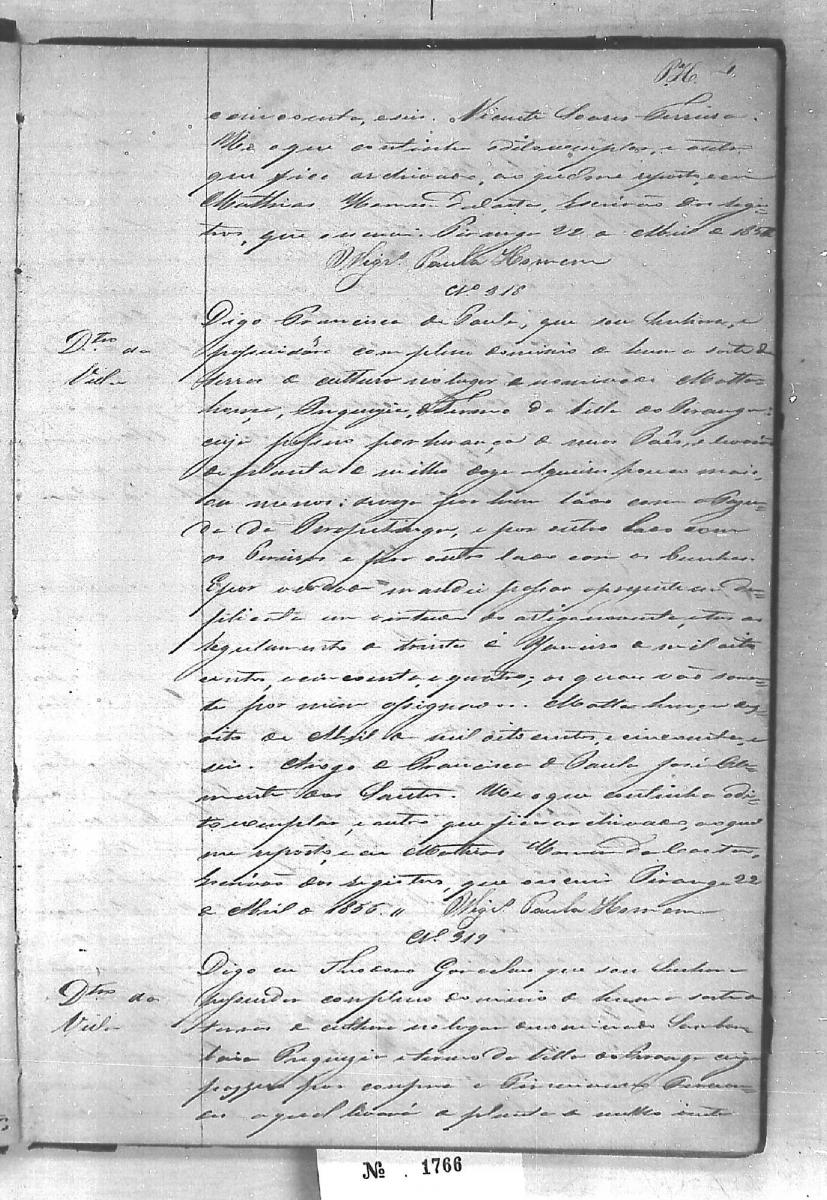 P.H.
e cincoenta, e seis. Vicente Soares Ferreira.
He o que continha o dito exemplar, e outro
que fica archivado, ao qual me reporto, e eu
Mathias Homem da Costa, Escrivão dos regis-
tros, que o escrevi. Piranga 22 de Abril de 1856
Vigr.o Paula Homem
N.o 318
D.tros da
Villa
Digo Francisca de Paula, que sou Senhora, e
possuidora com pleno dominio de huma sorte de
terras de cultura no lugar denominado Matta
, Freguezia, e Termo da Villa do Piranga:
cujas possuo por herança de meus Paes, e levarão
de planta de milho doze alqueires pouco mais,
ou menos: diviza por hum lado com a Fazen-
da da Pirapetinga, e por outro lado com
os Pereiras e por outro lado com os Cunhas.
E por verdade mandei passar o prezente em du-
plicata em virtude do artigo noventa, e tres do
Regulamento de trinta de Janeiro de mil oito
centos, e cincoenta, e quatro; os quaes vão somen-
te por mim assignados. Matta dez-
oito de Abril de mil oito centos, e cincoenta, e
seis. Arogo de Francisca de Paula José Cle-
mente dos Santos. He o que continha o di-
to exemplar, e outro que fica archivado, ao qual
me reporto, e eu Mathias Homem da Costa,
Escrivão dos registros, que o escrevi Piranga 22
de Abril de 1856. Vigr.o Paula Homem
N.o 319
D.tros da
Villa
Digo eu Theodoro Gonçalves que sou Senhor e
possuidor com pleno dominio de huma sorte de
terras de cultura no lugar denominado
Freguezia e termo da Villa do Piranga cujas
por compra
levará de planta de milho
No. 1766